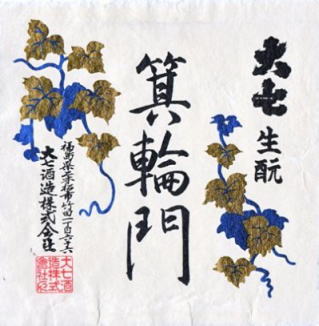 大七
生酛
箕輪門
福島県二本松市竹田一丁目六十六
大七酒造株式会社
大七酒
造株式
會社印